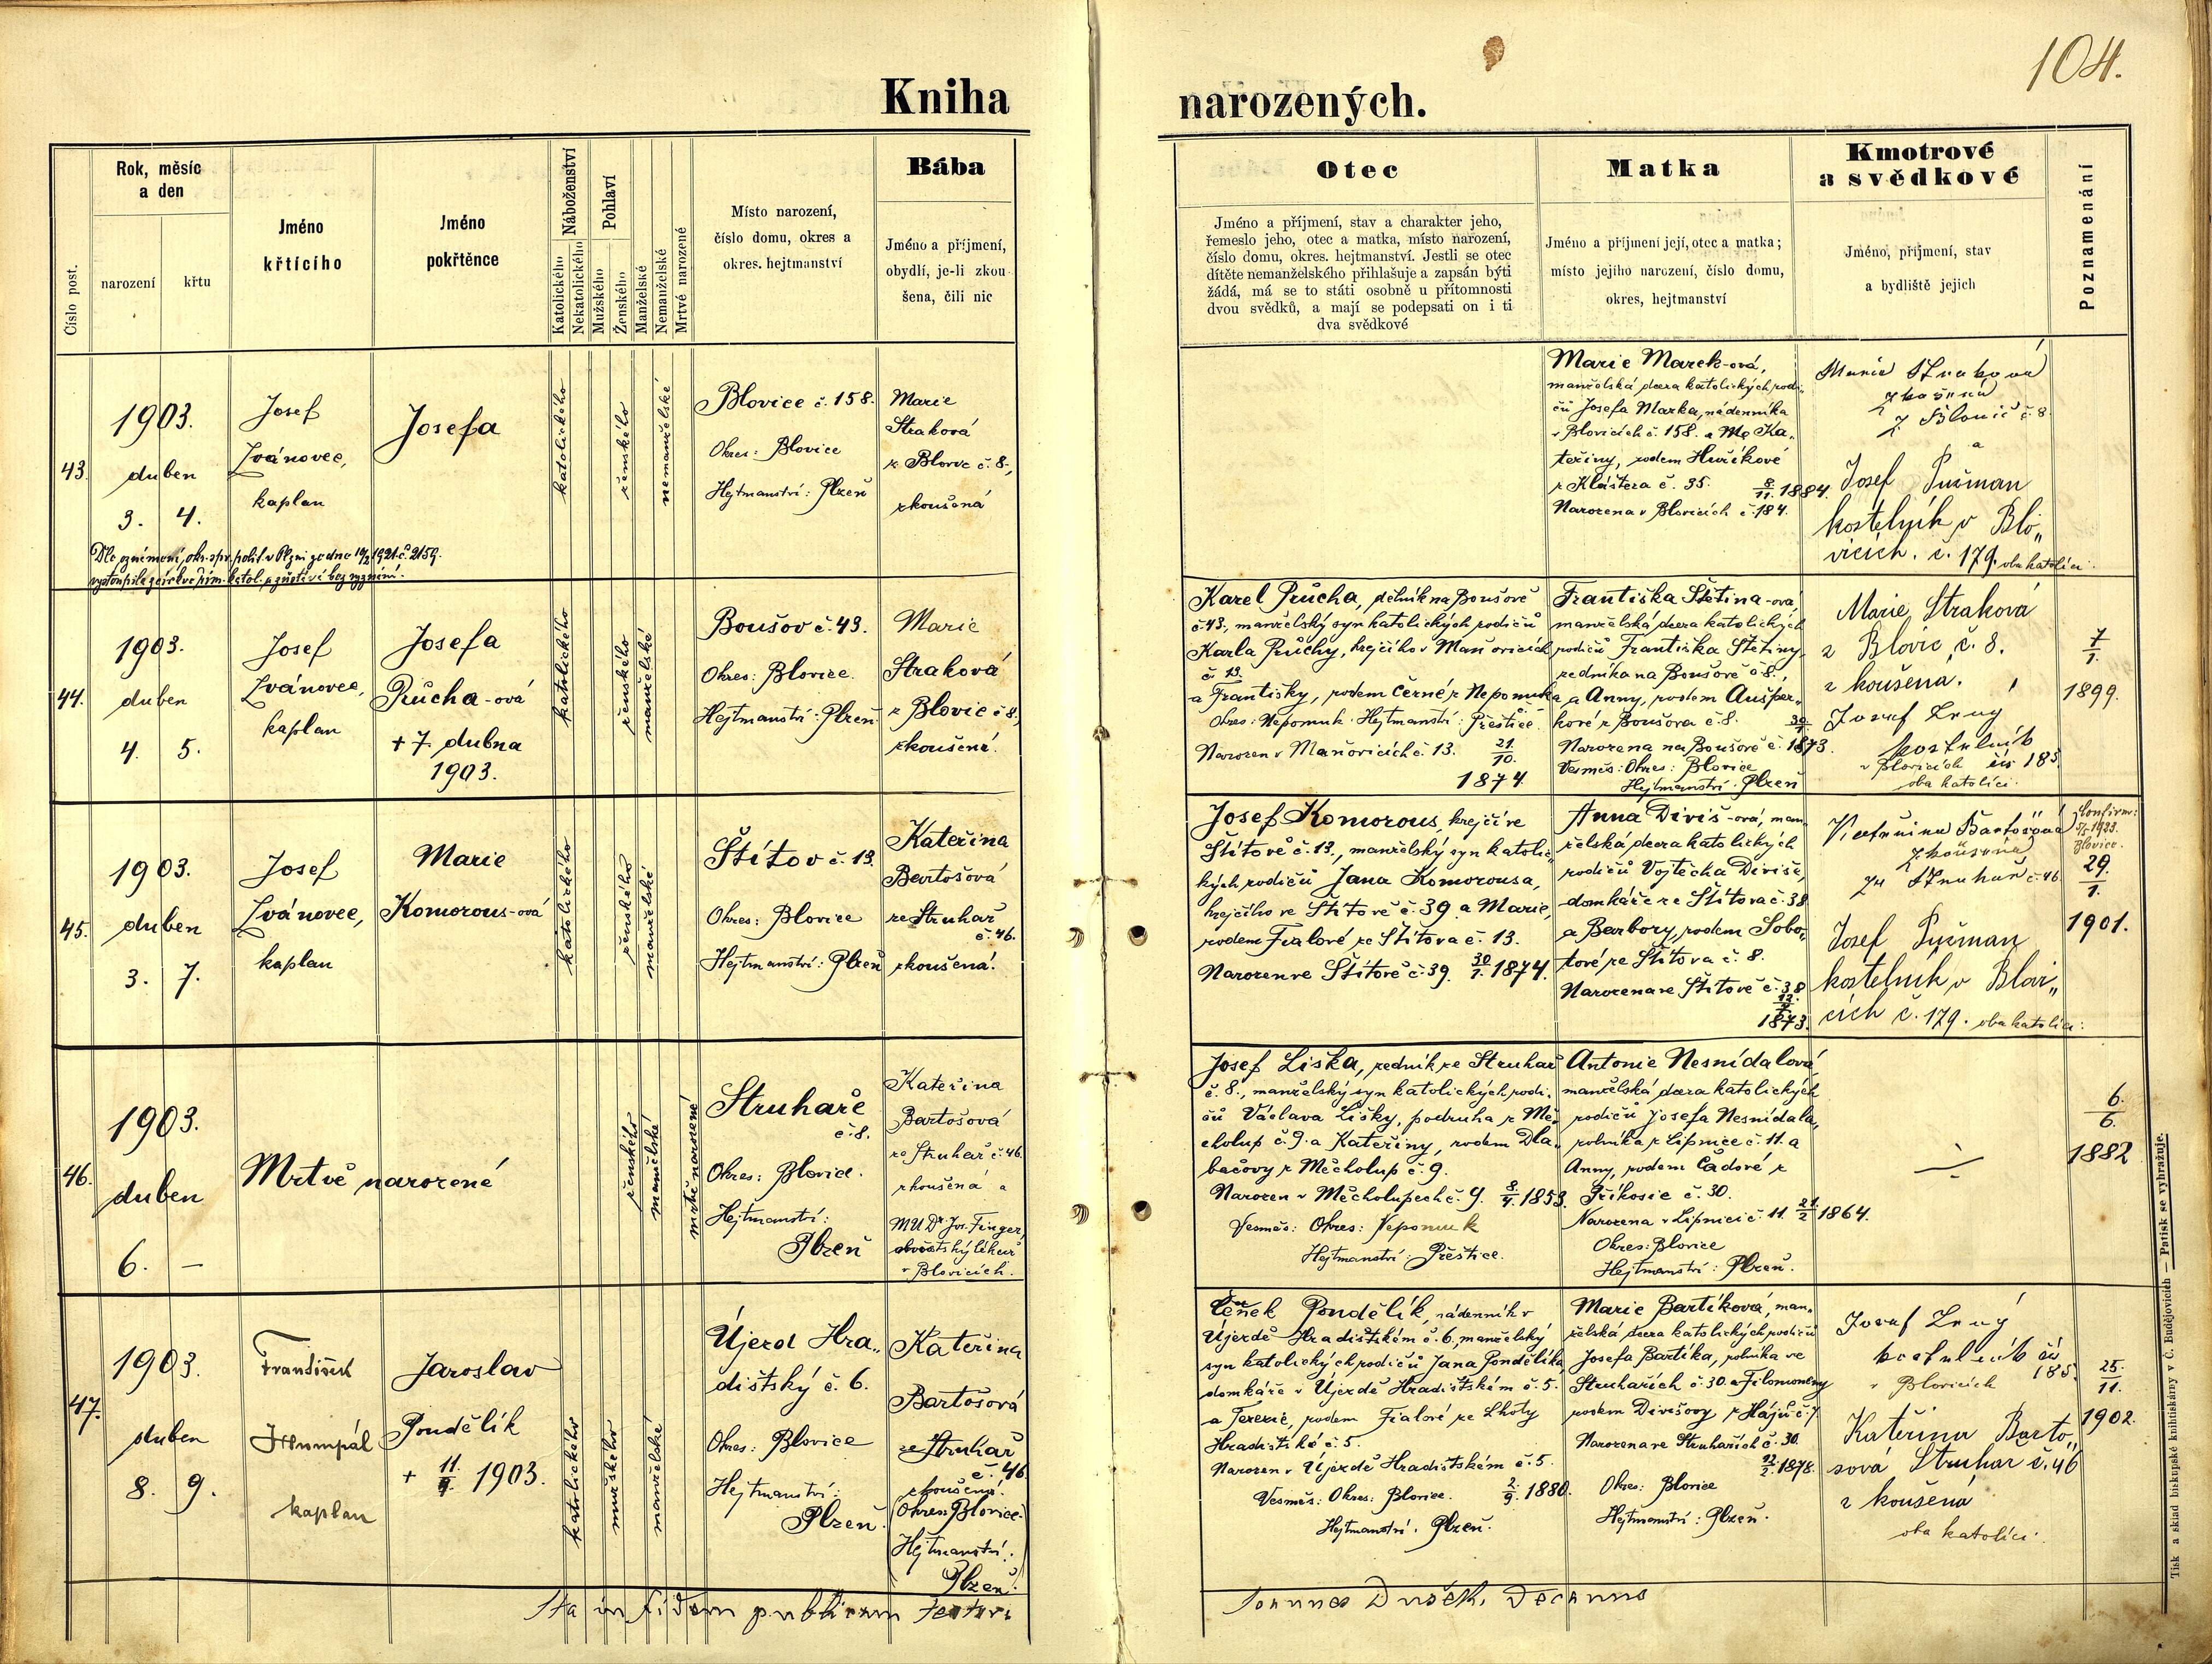 104.
Kniha narozených.
Číslo post.
Rok, měsíc
a den
narození
křtu
Jméno
křtícího
Jméno
pokřtěnce
Náboženství
Katolického
Nekatolického
Pohlaví
Mužského
Ženského
Manželské
Nemanželské
Mrtvě narozené
Místo narození,
číslo domu, okres a
okres. hejtmanství
Bába
Jméno a příjmení,
obydlí, je-li zkou
šena, čili nic
Otec
Jméno a příjmení, stav a charakter jeho,
řemeslo jeho, otec a matka, místo narození,
číslo domu, okres. hejtmanství. Jestli se otec
dítěte nemanželského přihlašuje a zapsán býti
žádá, má se to státi osobně u přítomnosti
dvou svědků, a mají se podepsati on i ti
dva svědkové
Matka
Jméno a příjmení její, otec a matka;
místo jejího narození, číslo domu,
okres, hejtmanství
Kmotrové
a svědkové
Jméno, příjmení, stav
a bydliště jejich
Poznamenání
43.
1903.
duben
3. 4.
Josef
Ivánovec,
kaplan
Josefa
katolického
ženského
nemanželské
Blovice č. 158.
Okres: Blovice
Hejtmanství: Plzeň
Marie
Straková
z Blovic č. 8.,
zkoušená
Marie Marek-ová,
manželská dcera katolických rodi-
čů Josefa Marka, nádenníka
v Blovicích č. 158. a Ka-
teřiny, rodem
z Kláštera č. 35.
Narozena v Blovicích č. 184. 8/11. 1884.
Marie Straková
zkoušená
z Blovic č 8.
a
Josef Pušman
kostelník v Blo„
vicích. č. 179. oba katolíci.
Dle oznámení okr. spr. polit. v Plzni ze dne 1921 č. 2159.
vystoupila z církve řím. katol. a zůstává bez vyznání.
44.
1903.
duben
4. 5.
Josef
Ivánovec,
kaplan
Josefa
Průcha-ová
+ 7. dubna
1903.
katolického
ženského
manželské
Boušov č. 43.
Okres: Blovice.
Hejtmanství: Plzeň
Marie
Straková
z Blovic č 8.,
zkoušená.
Karel Průcha, dělník na Boušově
č 43., manželský syn katolických rodičů
Karla Průchy, krejčího v Maňovicích
č 13.
a Františky, rodem Černé z Nepomuka
Okres: Nepomuk. Hejtmanství: Přeštice.
Narozen v Maňovicích č. 13. 21./10.
1874.
Františka Štětina-ová,
manželská dcera katolických
rodičů Františka Štětiny,
zedníka na Boušově č 8.,
a Anny, rodem Aušper„
kové z Boušova č. 8.
Narozena na Boušově č. 1873.
Vesměs: Okres: Blovice
Hejtmanství: Plzeň
Marie Straková
z Blovic, č. 8.
zkoušena.
Josef Levý
kostelník
v Blovicích čís 185
oba katolíci.
7/1.
1899.
45.
1903.
duben
3. 7.
Josef
Ivánovec,
kaplan
Marie
Komorous-ová
katolického
ženského
manželské
Štítov č. 13.
Okres: Blovice
Hejtmanství: Plzeň
Kateřina
Bartošová
ze Struhař
č. 46.
zkoušená.
Josef Komorous, krejčí ve
Štítově č. 13., manželský syn katolic„
kých rodičů Jana Komorousa,
krejčího ve Štítově č. 39. a Marie,
rodem Fialové ze Štítova č. 13.
Narozen ve Štítově č. 39. 30/1. 1874.
Anna Diviš-ová, man„
želská dcera katolických
rodičů Vojtěcha Diviše,
domkáře ze Štítova č. 38
a Barbory, rodem Sobo„
tové ze Štítova č. 8.
Narozena ve Štítově č. 38
1873.
Kateřina Bartošová
zkoušená
ze Struhař č. 46.
Josef Pušman
kostelník v Blovi„
cích č. 179. oba katolíci:
Konfirm:
1923.
Blovice.
29./1.
1901.
46.
1903.
duben
6. —
Mrtvě narozené
ženského
manželské
mrtvě narozené
Struhaře
č. 8.
Okres: Blovice.
Hejtmanství:
Plzeň
Kateřina
Bartošová
ze Struhař č. 46.
zkoušená a
MUDr Jos. Finger,
obvodský lékař
v Blovicích.
Josef Liška, zedník ze Struhař
č. 8., manželský syn katolických rodi„
čů Václava Lišky, podruha z Mě„
cholup č. 9. a Kateřiny, rodem Dla„
bačovy z Měcholup č. 9.
Narozen v Měcholupech č. 9. 8/4. 1853.
Vesměs: Okres: Nepomuk
Hejtmanství: Přeštice.
Antonie Nesnídalová,
manželská dcera katolických
rodičů Josefa Nesnídala,
rolníka z Lipnice č. 11. a
Anny, rodem Čadové z
Příkosic č. 30.
Narozena v Lipnici č. 11. 21./2. 1864.
Okres: Blovice
Hejtmanství: Plzeň.
6./6.
1882
47.
1903.
duben
8. 9.
František
kaplan
Jaroslav
Pondělík
+ 11/9. 1903.
katolického
mužského
manželské
Újezd Hra„
dištský č. 6.
Okres: Blovice
Hejtmanství:
Plzeň.
Kateřina
Bartošová
ze Struhař
č. 46.
zkoušená.
Okres: Blovice.
Hejtmanství:
Plzeň.
Čeněk Pondělík, nádenník v
Újezdě Hradištském č. 6, manželský
syn katolických rodičů Jana Pondělíka,
domkáře v Újezdě Hradištském č. 5.
a Terezie, rodem Fialové ze Lhoty
Hradištské č. 5.
Narozen v Újezdě Hradištském č. 5.
Vesměs: Okres: Blovice. 2/9. 1880.
Hejtmanství: Plzeň.
Marie Bartíková, man„
želská dcera katolických rodičů
Josefa Bartíka, rolníka ve
Struhařích č. 30. a Filomoniny
rodem Divišovy z Hájů č. 7
Narozena ve Struhařích č. 30.
12./2. 1878.
Okres: Blovice
Hejtmanství: Plzeň.
Josef Levý
kostelník čís
v Blovicích 185.
Kateřina Barto„
šová Struhař č. 46
zkoušená
oba katolíci.
25./11.
1902.
Ita in fidem publicam testor:
Joannes Dušek, Decanus
Tisk a sklad biskupské knihtiskárny v Č. Budějovicích — Patisk se vyhražuje.